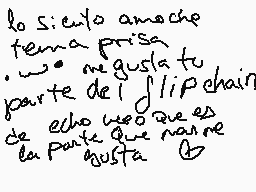 lo siento anoche
tenia prisa
.w. me gusta tu
parte del flipchain
de echo veo que es
la parte que mas me
gusta